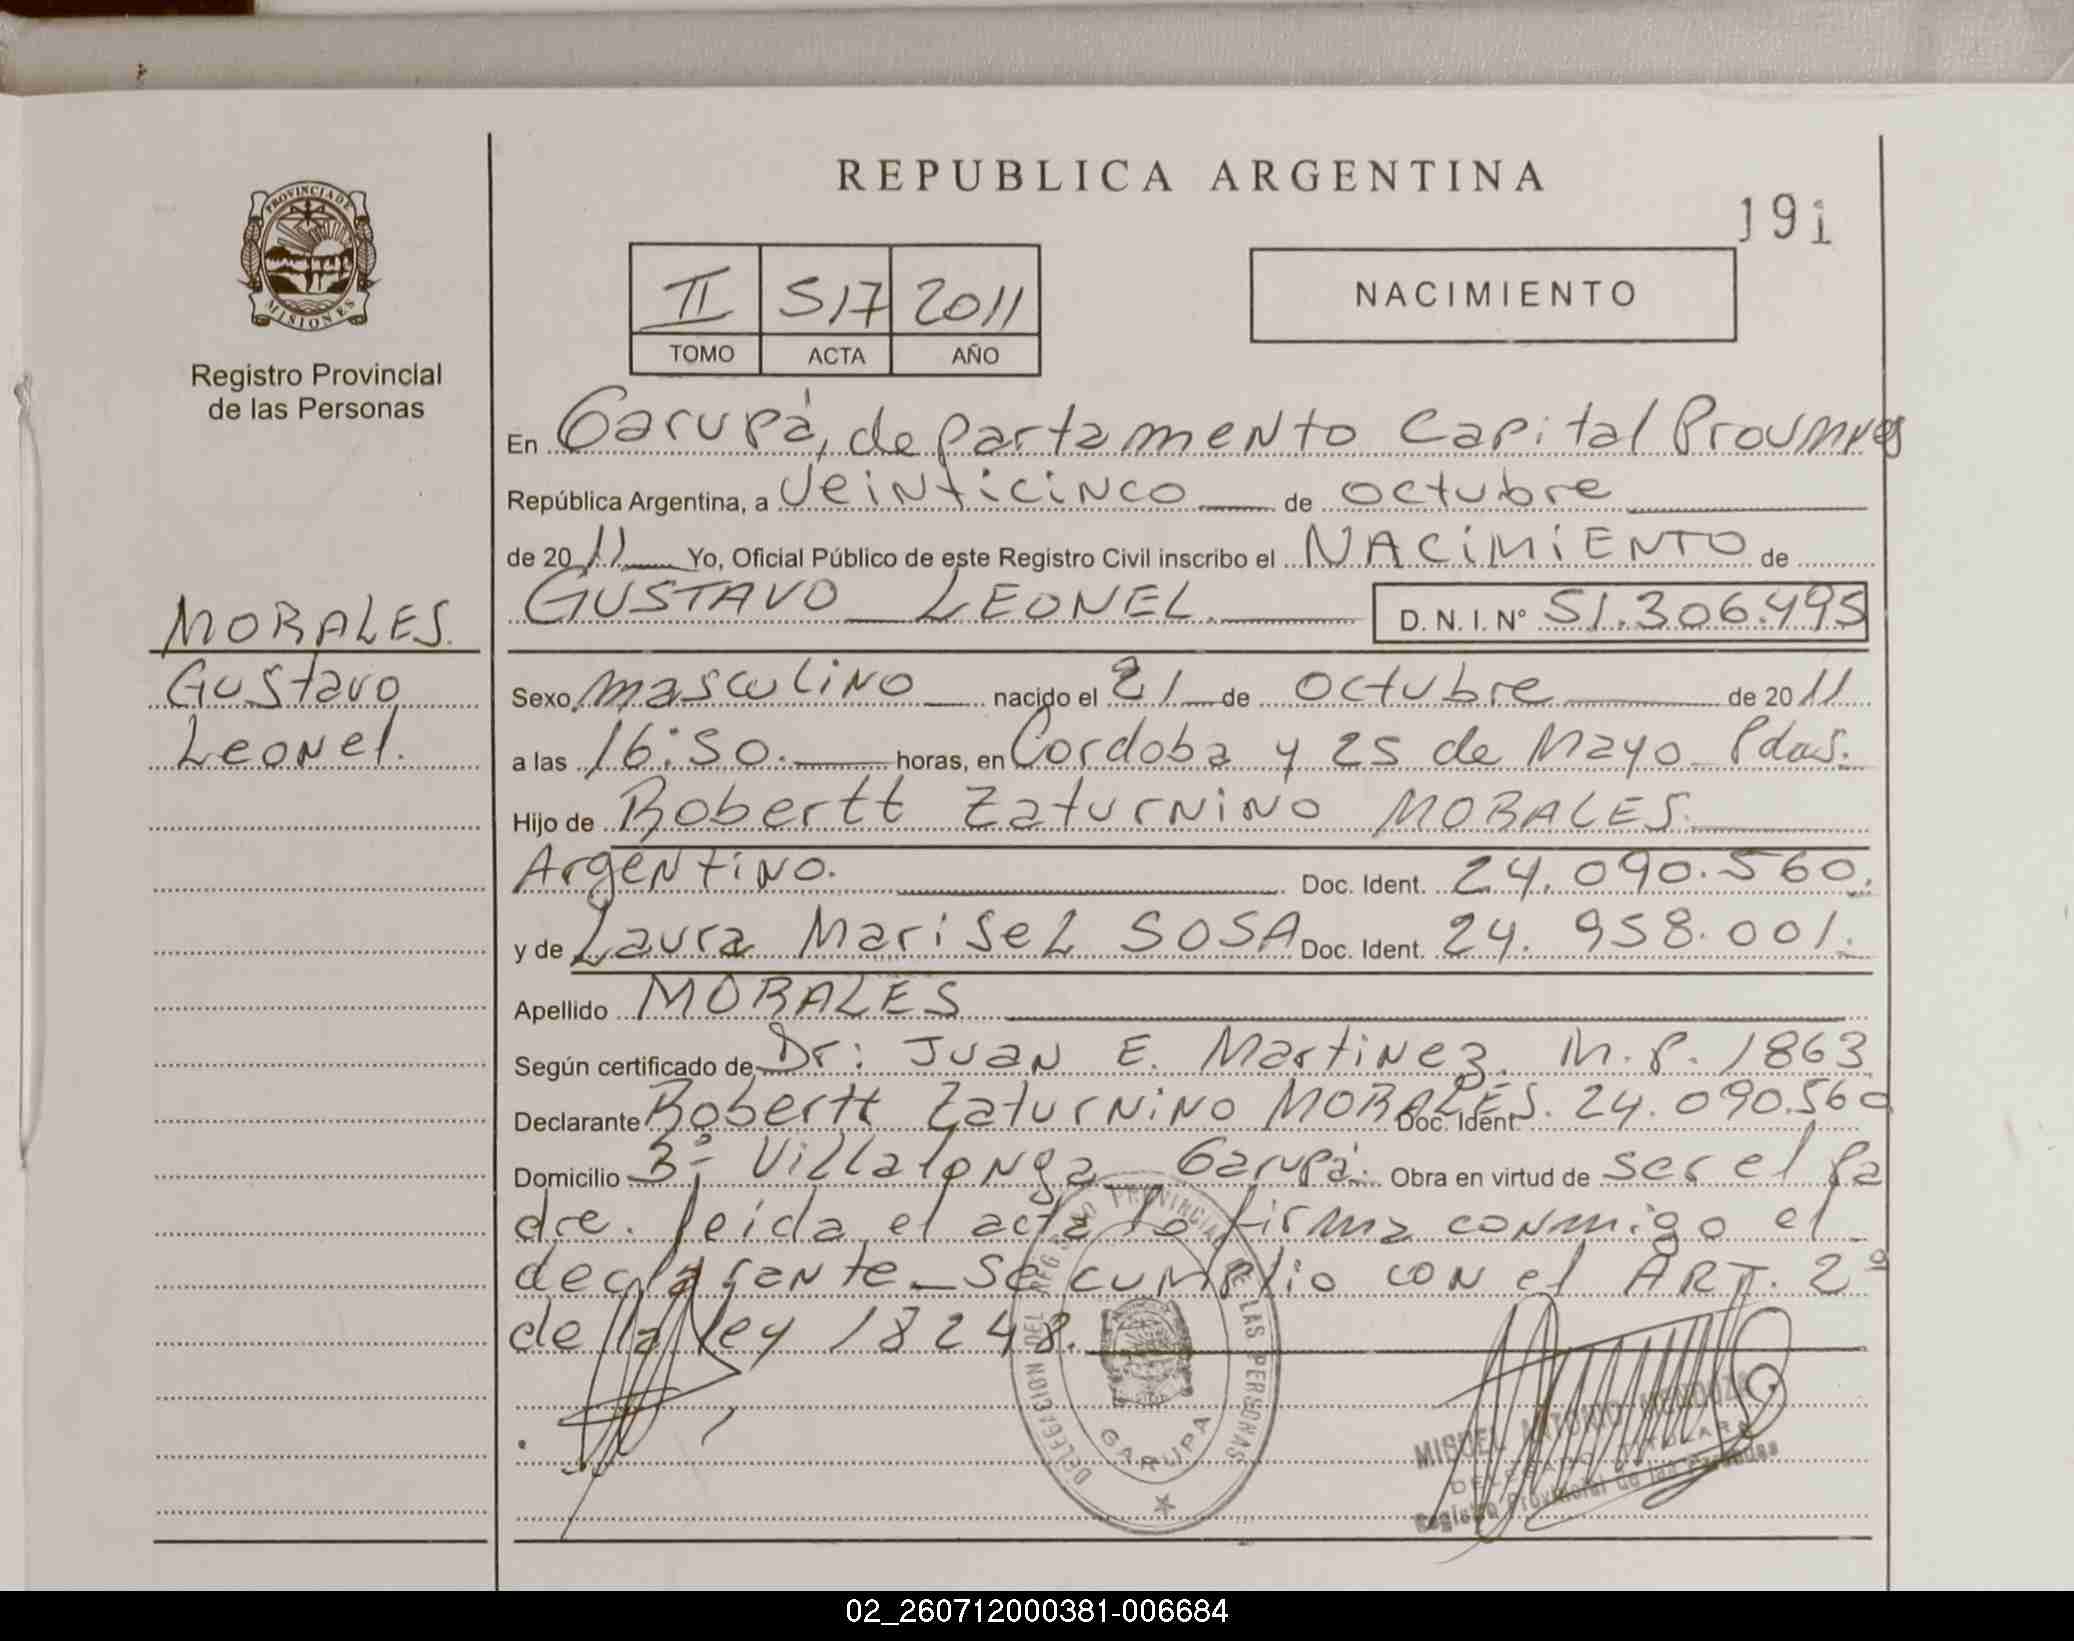 REPUBLICA ARGENTINA
191
PROVINCIA DE
MISIONES
Registro Provincial
de las Personas
II 517 2011
TOMO ACTA AÑO
NACIMIENTO
En Garupá, departamento Capital
República Argentina, a veinticinco de octubre
de 2011 Yo, Oficial Público de este Registro Civil inscribo el NACIMIENTO de
GUSTAVO LEONEL. D. N. I. N° 51.306.495
MORALES.
Gustavo
Leonel.
Sexo masculino nacido el 21 de octubre de 2011
a las 16:50. horas, en Cordoba y 25 de Mayo Pdas.
Hijo de Robertt Zaturnino MORALES.
Argentino. Doc. Ident. 24.090.560.
y de Laura Marisel SOSA Doc. Ident. 24.958.001.
Apellido MORALES
Según certificado de Dr: Juan E. Martinez. M.P. 1863
Declarante Robertt Zaturnino MORALES. Doc. Ident 24.090.560
Domicilio B° Villalonga Garupá. Obra en virtud de ser el pa
dre. leida el acta lo firma conmigo el
declarante_ se cumplio con el ART. 2º
de la ley 18248.
DELEGACION DEL REGISTRO PROVINCIAL DE LAS PERSONAS
GARUPA
MIGUEL ANTONIO MENDOZA
DELEGADO TITULAR
Registro Provincial de las Personas
02_260712000381-006684